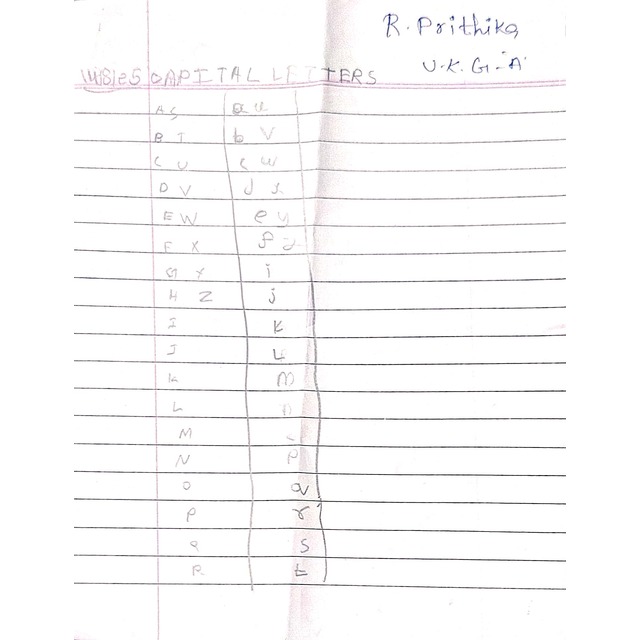 R. Prithika
U.K.G-'A'
14/8/25 CAPITAL LETTERS
A S a u
B T b v
C U c w
D V d x
E W e y
F X f z
G Y i
H Z j
I k
J L
K m
L n
M
N p
O q
P r
Q s
R t